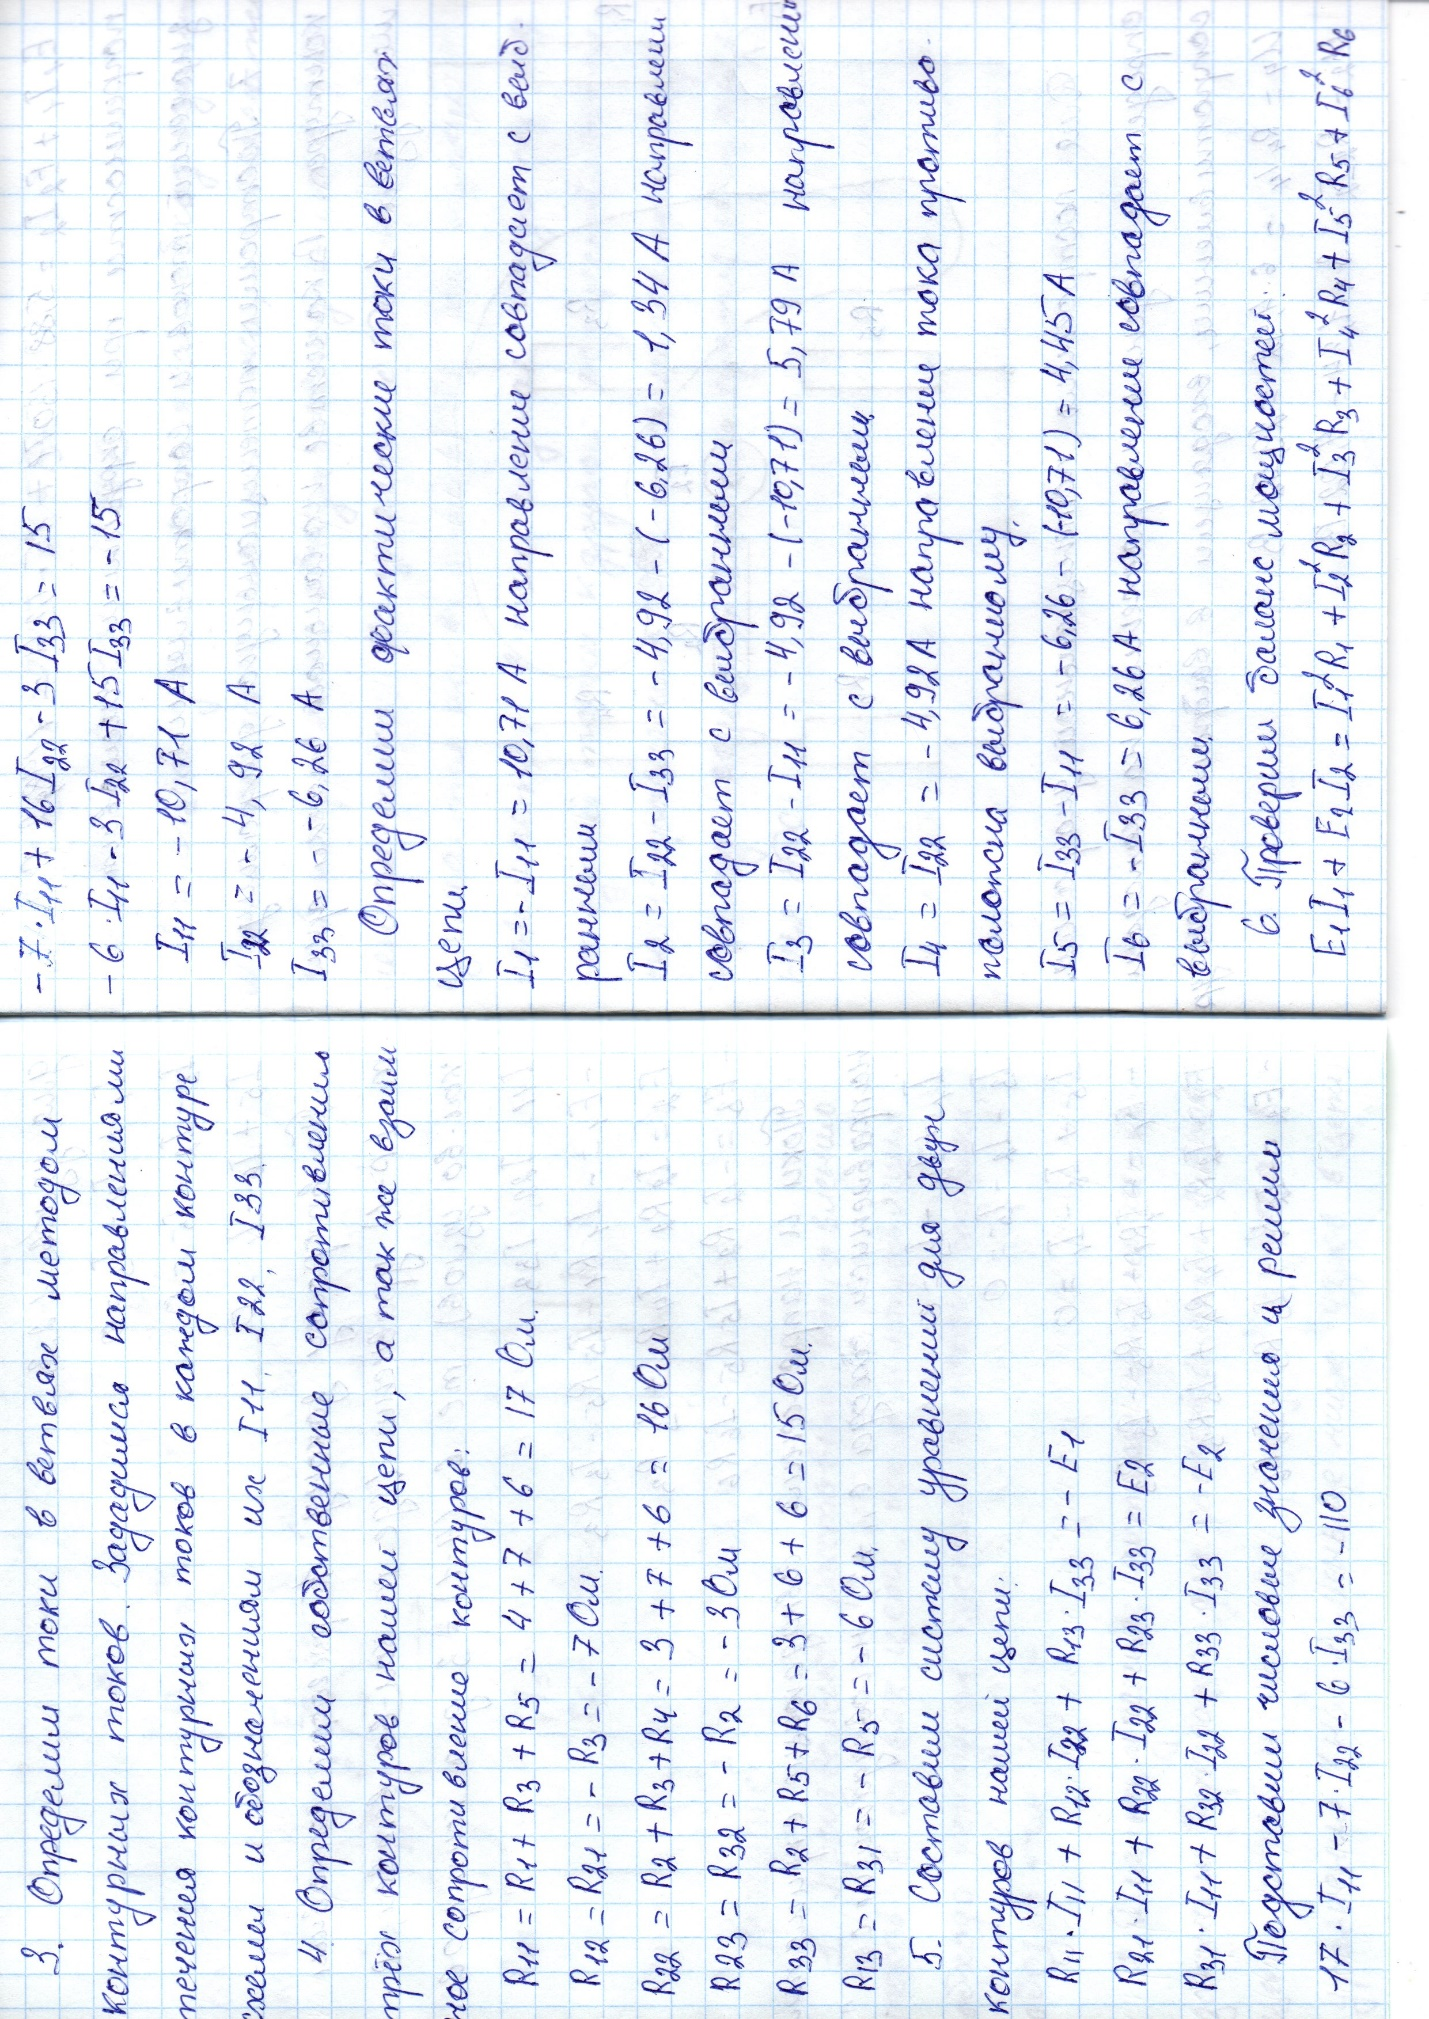 3. Определим токи в ветвях методом
контурных токов. Зададимся направлениями
течения контурных токов в каждом контуре
схемы и обозначениям их I11, I22, I33.
4. Определим собственные сопротивления
трёх контуров нашей цепи, а так же взаим
ное сопротивление контуров:
R11 = R1 + R3 + R5 = 4 + 7 + 6 = 17 Ом.
R12 = R21 = - R3 = - 7 Ом.
R22 = R2 + R3 + R4 = 3 + 7 + 6 = 16 Ом
R23 = R32 = - R2 = - 3 Ом
R33 = R2 + R5 + R6 = 3 + 6 + 6 = 15 Ом.
R13 = R31 = - R5 = - 6 Ом.
5. Составим систему уравнений для двух
контуров нашей цепи:
R11 · I11 + R12 · I22 + R13 · I33 = - E1
R21 · I11 + R22 · I22 + R23 · I33 = E2
R31 · I11 + R32 · I22 + R33 · I33 = - E2
Подставим числовые значения и решим
17 · I11 - 7 · I22 - 6 · I33 = - 110
- 7 · I11 + 16 I22 - 3 I33 = 15
- 6 · I11 - 3 I22 + 15 I33 = - 15
I11 = - 10,71 А
I22 = - 4,92 А
I33 = - 6,26 А
Определим фактические токи в ветвях
цепи.
I1 = - I11 = 10,71 А направление совпадает с выб.
ранным
I2 = I22 - I33 = - 4,92 - (- 6,26) = 1,34 А направлени
совпадает с выбранным
I3 = I22 - I11 = - 4,92 - (-10,71) = 5,79 А направлени
совпадает с выбранным
I4 = I22 = - 4,92 А направление тока противо.
положна выбранному.
I5 = I33 - I11 = - 6,26 - (-10,71) = 4,45 А
I6 = - I33 = 6,26 А направление совпадает с
выбранным.
6. Проверим баланс мощностей:
E1I1 + E2I2 = I1²R1 + I2²R2 + I3²R3 + I4²R4 + I5²R5 + I6²R6